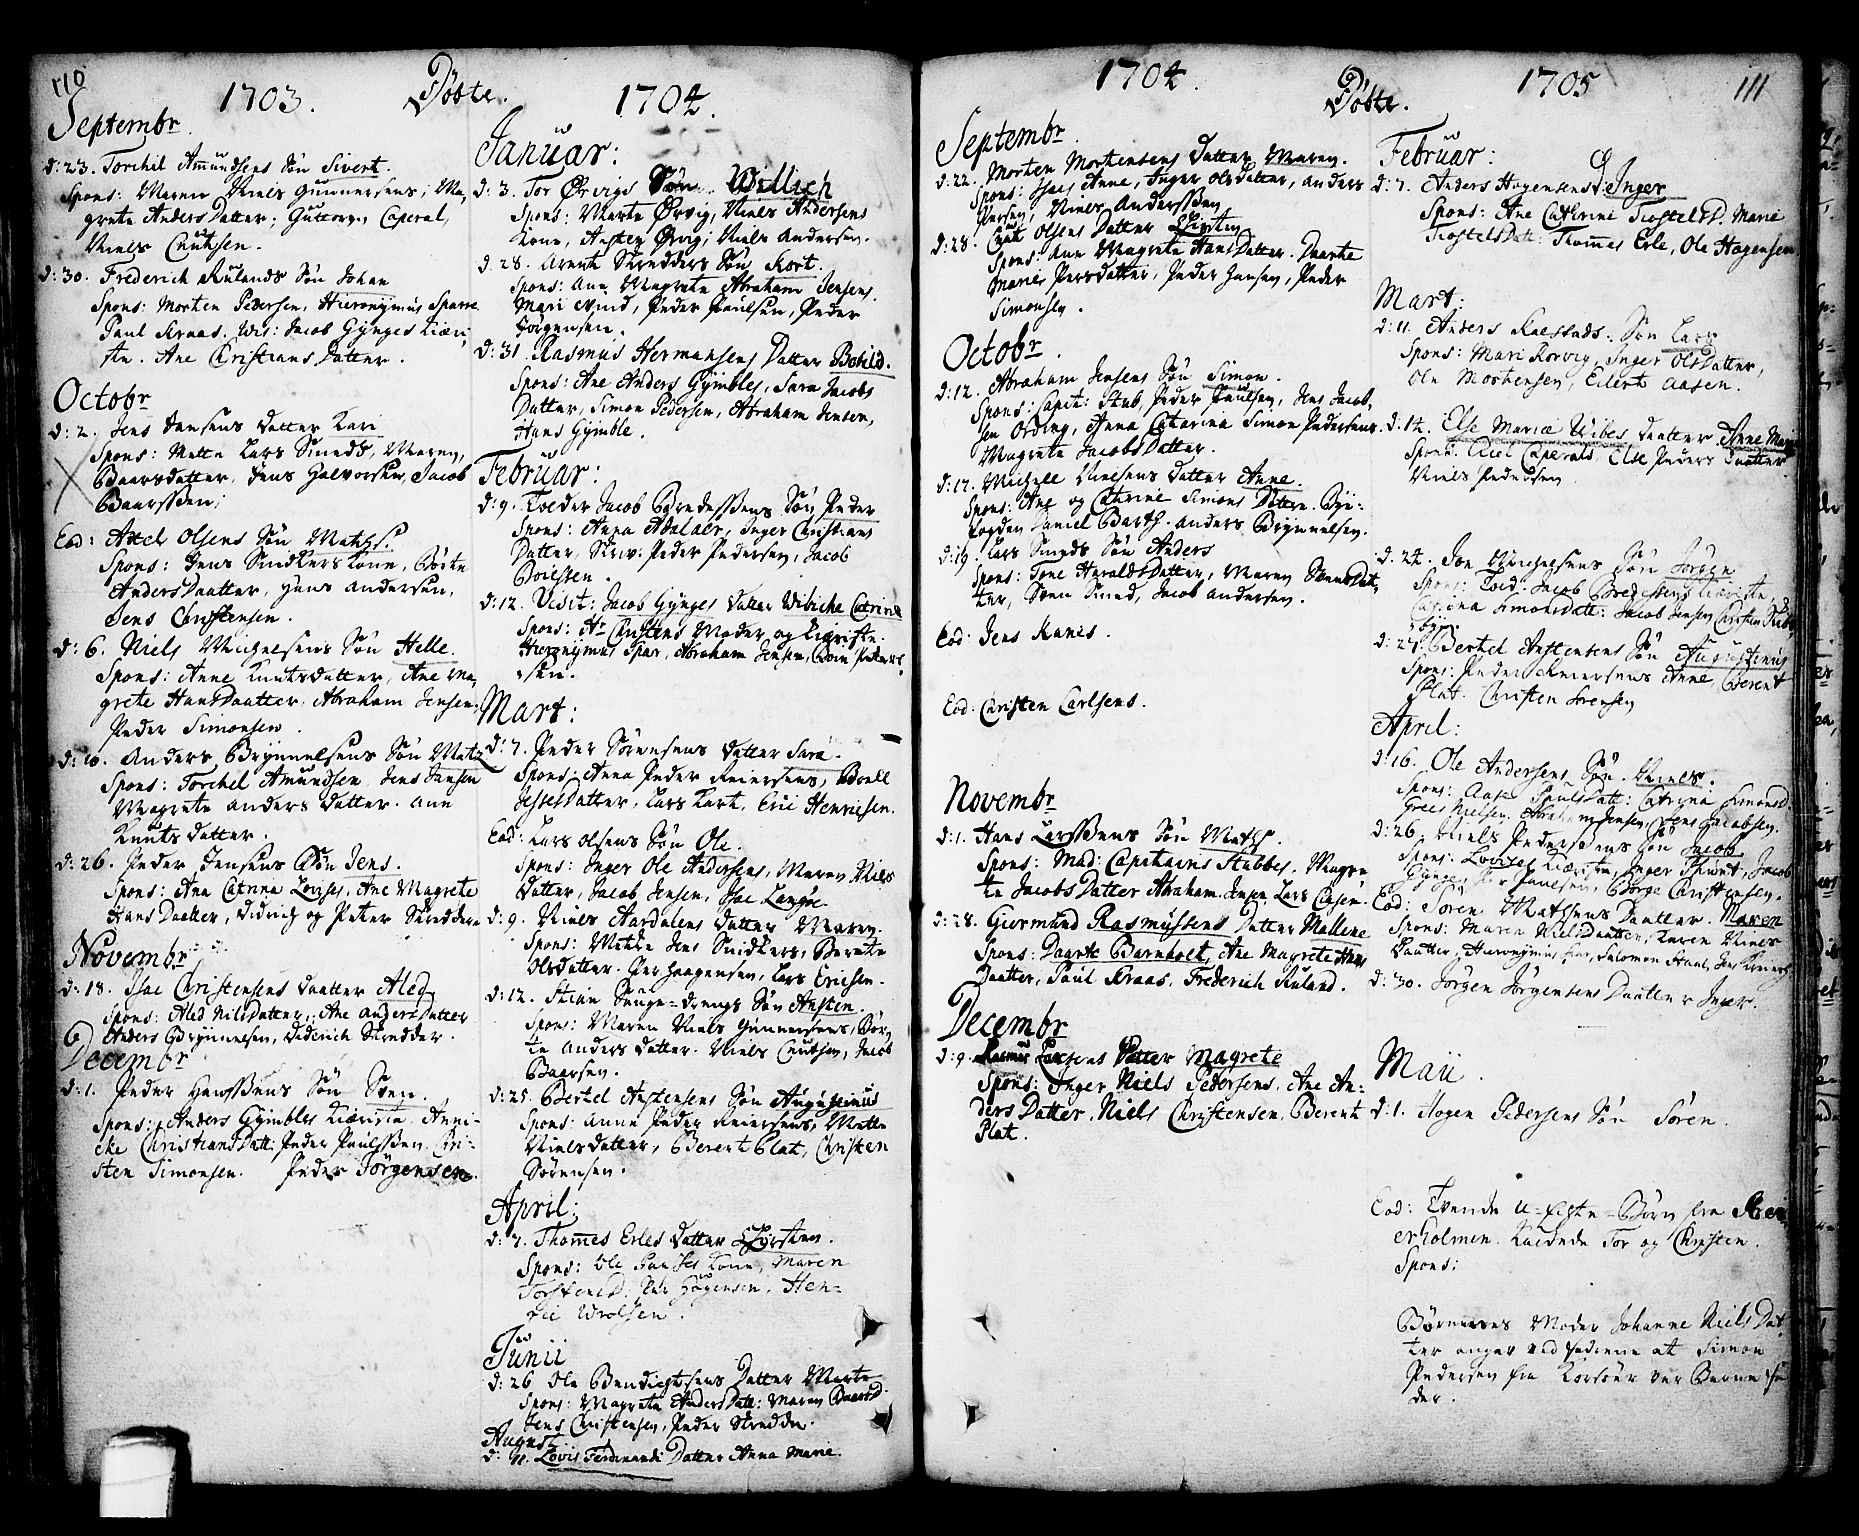 110
1703.
Döbte.
1704.
Septembr.
d: 23. Torchil Amundsens Sön Sivert.
Spons: Maren Niels Gunnersens; Ma-
grete Anders Datter; Guttorm Caperal,
Niels Cnutsen.
d: 30. Frederich Rulands Sön Johan
Spons: Morten Pedersen, Hieronymus Sparre
Paul Kraas. Vis: Jacob Gynges Kiæri-
ste. Ane Christians Datter.
Octobr
d: 2. Jens Jansens datter Kari
Spons: Mette Lars Smeds, Maren
Baarsdatter, Jens Halvorsen, Jacob
Baarssen;
Eod: Axel Olsens Sön Mathis.
Spons: Jens Snidkers Kone, Börte
Anders Daatter, Hans Andersen,
Jens Christensen.
d: 6. Niels Michelsens Sön Helle.
Spons: Anne Knuts datter, Ane Ma-
grete Hans Daatter, Abraham Jensen,
Peder Simonsen.
d: 10. Anders Brynnelsens Sön Matz
Spons: Torchel Amundsen, Jens Jansen
Magrete Anders datter. Ane
Knuts datter.
d: 26. Peder Jensens Sön Jens.
Spons: Ane Catrina Lovises, Ane Magrete
Hans Daatter, Didrich og Peter Skreddere
Novembr
d: 18. Isac Christensens Daatter Aled
Spons: Aled Nils Datter, Ane Anders Datter
Anders Brynnelsen, Diderich Skredder.
Decembr
d: 1. Peder Hanssens Sön Sven.
Spons: Anders Gymbles Kiæriste, Anni-
che Christians Datt: Peder Paulssen, Chri-
sten Simonsen. Peder Jörgensen.
Januar:
d: 3. Tor Örvigs Sön Willich
Spons: Marte Örvig, Niels Andersens
Kone, Austen Örvig, Niels Andersen.
d: 28. Arent Skredders Sön Kort.
Spons: Ane Magrete Abraham Jensens.
Mari, Peder Paulsen, Peder
Jörgensen.
d: 31. Rasmus Hermansens Datter Bohild.
Spons: Ane Anders Gymbles, Sara Jacobs
Datter, Simon Pedersen, Abraham Jensen,
Hans Gymble.
Februar:
d: 9. Toeder Jacob Bredessens Sön Peder
Spons: Anna Adalaer, Inger Christians
Datter, Skriv: Peder Pedersen, Jacob
Boiessen.
d: 12. Visit: Jacob Gynges Datter Wibiche Catrine
Spons: Hr Christens Moder og Kieriste.
Hieronymus Spar, Abraham Jensen,
sen.
Mart:
d: 7. Peder Sörensens datter Sara.
Spons: Anna Peder Reiersens, Boell
Jesses Datter, Lars Kort, Eric Henrichsen.
Eod: Lars Olsens Sön Ole.
Spons: Inger Ole Andersens, Maren Niels
Datter, Jacob Jensen, Isac Lange.
d: 9. Niels Aardalens datter Maren.
Spons: Mette Jens Snidkers, Berete
Olsdatter. Per Haagensen, Lars Ericsen.
d: 12. Stian Sauge-drengs Sön Austen.
Spons: Maren Niels Gunnersens, Bör-
te Anders datter. Niels Cnutsen, Jacob
Baarsen.
d: 25. Bertel Austensens Sön Augustinus
Spons: Anne Peder Reiersens, Mette
Nielsdatter, Berent Plat, Christen
Sörensen.
April:
d: 7. Thomes Erles datter Kyrsten.
Spons: Ole Kone, Maren
Högensen, Hen-
ric Wrolsen.
Junii
d: 26 Ole Bendichtsens Datter Marte
Spons: Magrete Anders Datt: Maren Baars D.
Jens Christensen, Peder Skredder.
August
d: 11. Lovis Ferdinandi Datter Anna Marie.
1704.
Döbte.
1705
111
Septembr.
d: 22. Morten Mortensens datter Maren.
Spons: Isacs Anne, Inger Olsdatter, Anders
Persen, Niels Anderssen
d: 28. Cnut Olsens Datter Kirsten
Spons: Ane Magrete Hans Datter. Daarte
Marie Persdatter, Peder Hansen, Peder
Simonsen.
Octobr.
d: 12. Abraham Jensens Sön Simon.
Spons: Capit: Stub, Peder Paulsen, Jens Jacob-
sen Ording, Anna Catarina Simon Pedersens
Magrete Jacobs Datter.
d: 17. Michell Nielsens datter Anne.
Spons: Ane og Catrine Simons Døttre. Bye-
fogden Daniel Barth. Anders Brynnelsen.
d: 19. Lars Smeds Sön Anders
Spons: Tone Haralds Datter, Maren Svens Dat-
ter, Sven Smed, Jacob Andersen.
Eod: Jens Kanis.
Eod: Christen Carlsens.
Novembr
d: 1. Hans Larssens Sön Maths.
Spons: Mad: Capitains Stubbes, Magre-
te Jacobs Datter Abraham Jensen Lars
d: 28. Giermund Rasmussens Datter Mallene
Spons: Daarte Barnholt, Ane Magrete Hans
Daatter, Paul Kraas, Frederich Ruland.
Decembr
d: 9. Rasmus Larsens Datter Magrete
Spons: Inger Niels Pedersens, Ane An-
ders Datter, Niels Christensen, Berent
Plat.
Februar:
d: 7. Anders Hagensens D: Inger
Spons: Ane Cathrine Tostels D. Marie
Tostels Datt: Thomes Erle, Ole Hagensen
Mart:
d: 11. Anders Kalstads. Sön Lars
Spons: Mari Rorvig, Inger Ols Datter,
Ole Mortensen, Eilert Aasen.
d: 14. Else Mariæ Uibes daatter Anne Marie
Spons: Axel Caperals, Else Peders Daatter
Niels Pedersen
d: 24. Jon Michelsens Sön Jörgen
Spons: Toed: Jacob Bredessens Kiæriste,
Catrina Simonsdatt: Jacob Jensen, Christen
d: 27. Bertel Anstensens Sön Augustinus
Spons: Peder Reiersens Anne, Berent
Plat. Christen Sörensen
April:
d: 16. Ole Andersens Sön. Niels.
Spons: Aase Pouls Datt: Catrina Simons D:
Grees Nielsen, Abraham Jensen, Jens Jacobsen.
d: 26. Niels Pedersens Sön Jacob
Spons: Lovises Kiæriste, Inger Thurt, Jacob
Gynge, Paulsen, Börge Christensen.
Eod: Sören Mathsens Daatter. Maren
Spons: Maren Niels Daatter, Karen Niels
Daatter, Hieronymus Spar, Salomon
d: 30. Jörgen Jörgensens Daatter Inger.
Maii.
d: 1. Hogen Pedersens Sön Sören.
Eod: Tvende U-Egte-Börn fra
erholmen Kaldede Tor og Christen.
Spons:
Börnenes Moder Johanne Niels Dat-
ter angav ved Fadderne at Simon
Pedersen fra Korsöer var Barne fa-
der.